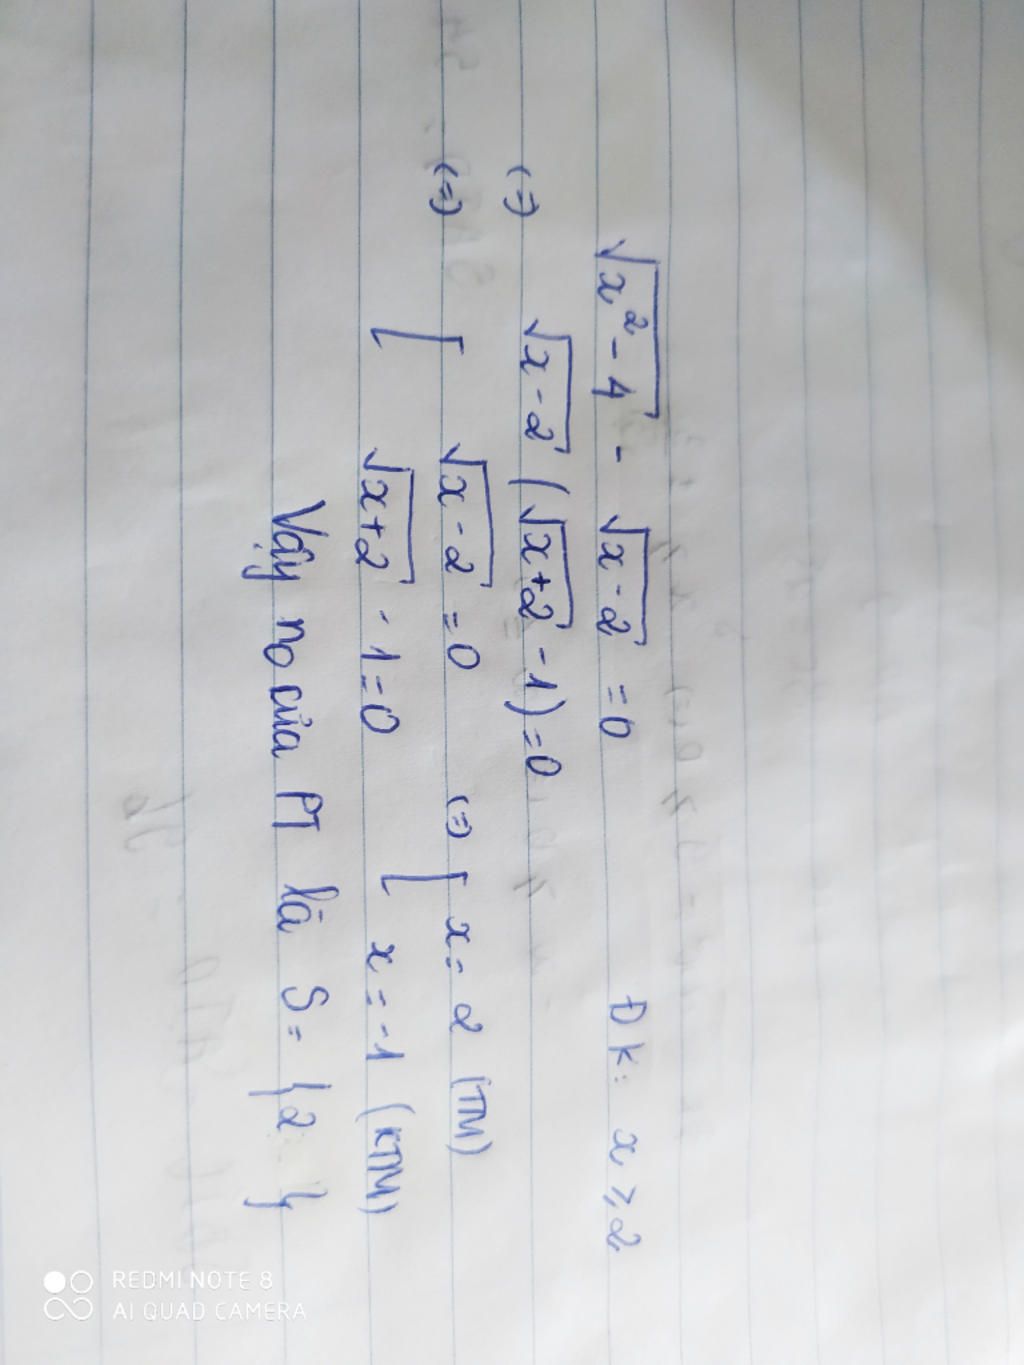 √(x² - 4) - √(x - 2) = 0 ĐK: x ≥ 2
(=) √(x - 2) (√(x + 2) - 1) = 0
(=) [ √(x - 2) = 0 (=) [ x = 2 (TM)
√(x + 2) - 1 = 0 x = -1 (KTM)
Vậy no của PT là S = {2}
REDMI NOTE 8
AI QUAD CAMERA